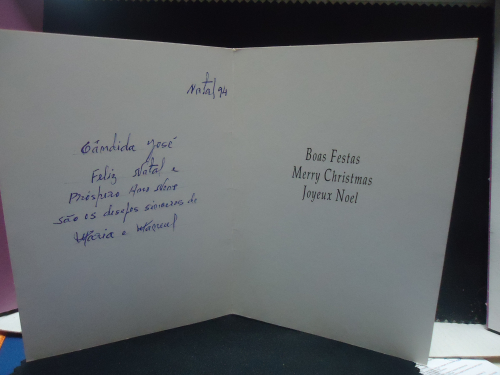 Natal 94
Cândida José
Feliz Natal e
Próspero Ano Novo
são os desejos sinceros de
Maria e Manuel
Boas Festas
Merry Christmas
Joyeux Noel